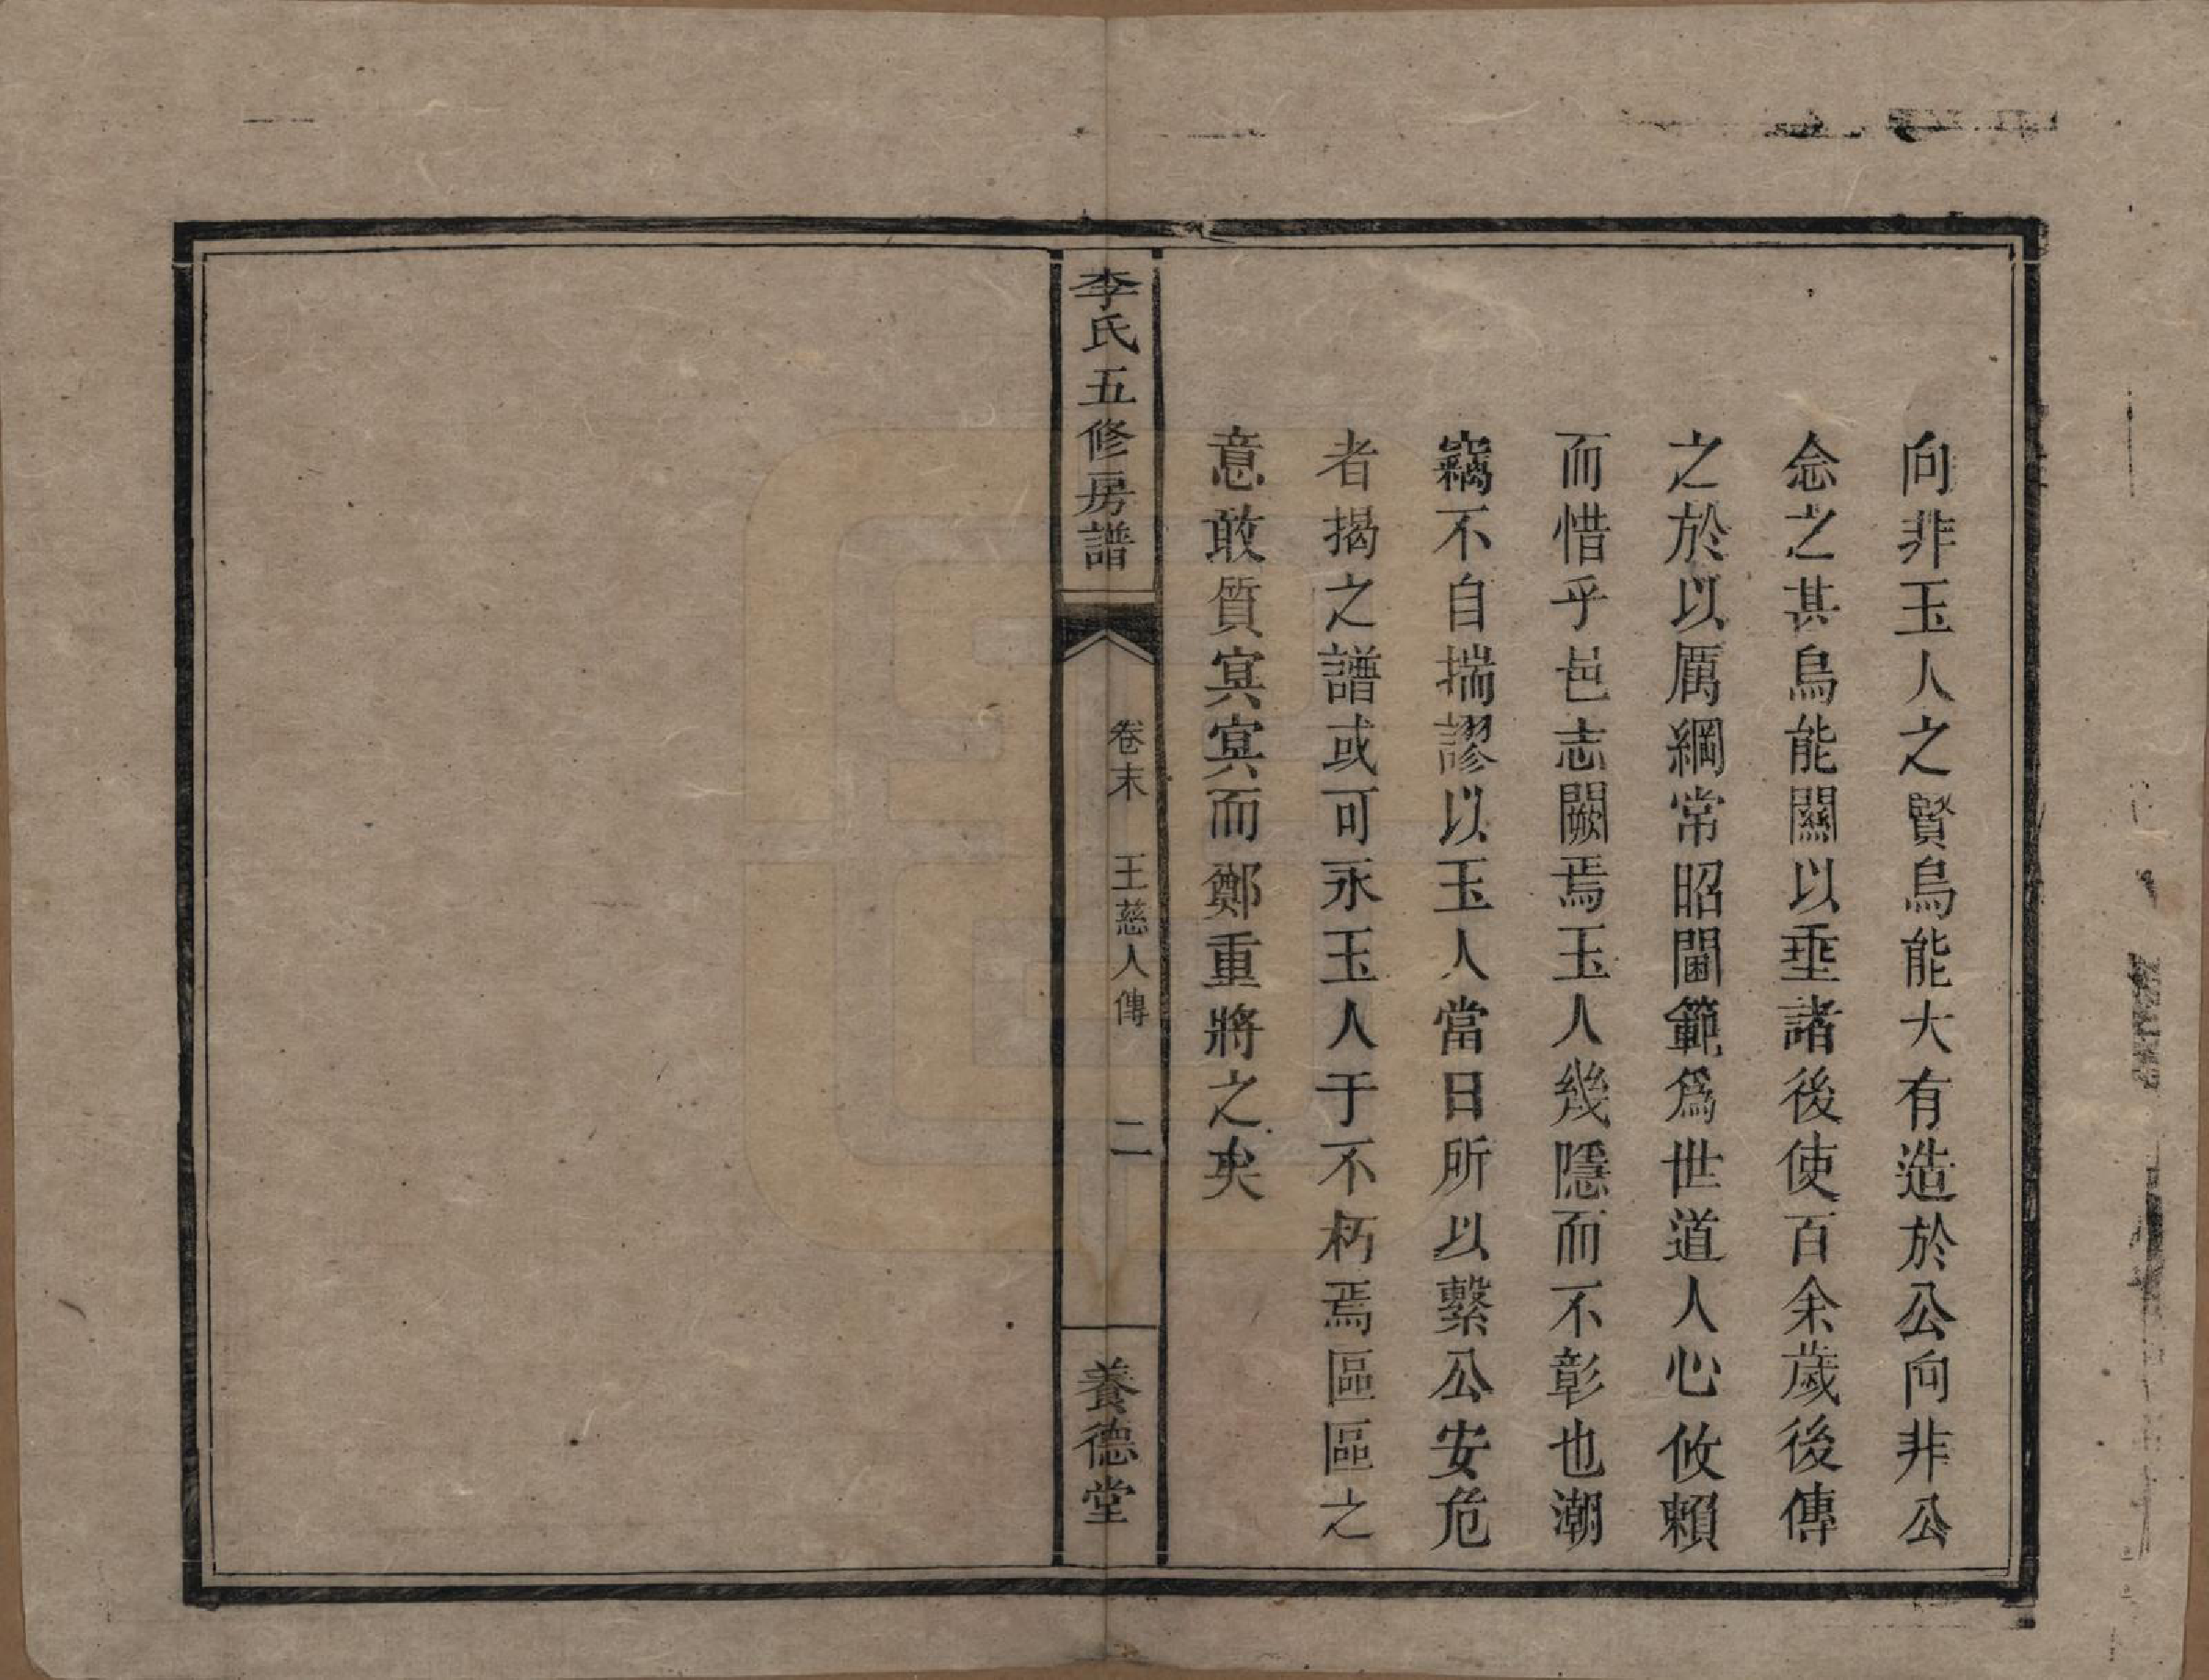 向非玉人之賢烏能大有造於公向非公
念之甚烏能關以垂諸後使百余歲後傳
之於以厲綱常昭閫範爲世道人心攸賴
而惜乎邑志闕焉玉人幾隱而不彰也潮
竊不自揣謬以玉人當日所以繫公安危
者揭之譜或可永玉人于不朽焉區區之
意敢質冥冥而鄭重將之矣
李氏五修房譜
卷末 王慈人傳 二
養德堂